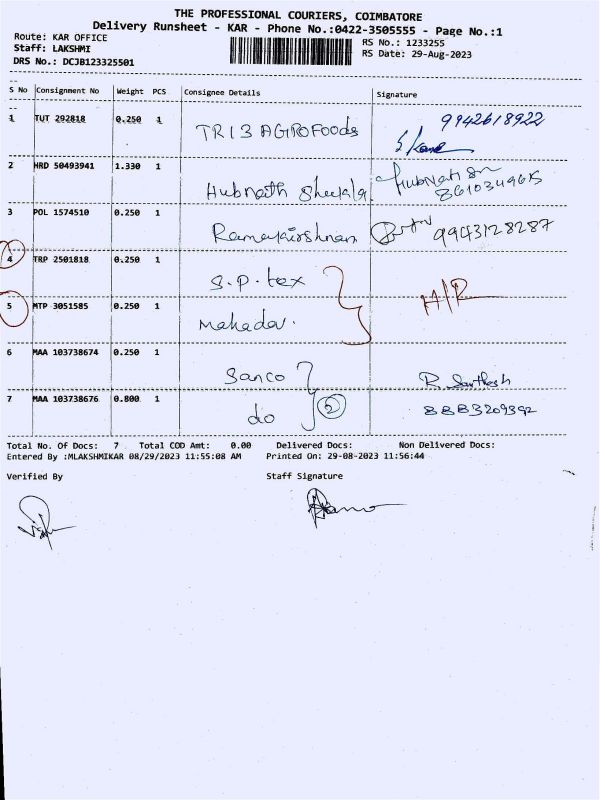 THE PROFESSIONAL COURIERS, COIMBATORE
Delivery Runsheet - KAR - Phone No.:0422-3505555 - Page No.:1
Route: KAR OFFICE
RS No.: 1233255
Staff: LAKSHMI
RS Date: 29-Aug-2023
DRS No.: DCJB123325501
S No Consignment No Weight PCS Consignee Details Signature
1 TUT 292818 0.250 1 TRI3 AGROFoods 9942618922
2 HRD 50493941 1.330 1 Hubnath
3 POL 1574510 0.250 1 Ramakirshnan 9943128287
4 TRP 2501818 0.250 1 S.P.tex
H/R
5 MTP 3051585 0.250 1 Mahadev.
6 MAA 103738674 0.250 1 Sanco R. Santhosh
7 MAA 103738676 0.800 1 do 2 8883209392
Total No. Of Docs: 7 Total COD Amt: 0.00 Delivered Docs: Non Delivered Docs:
Entered By :MLAKSHMIKAR 08/29/2023 11:55:08 AM Printed On: 29-08-2023 11:56:44
Verified By Staff Signature